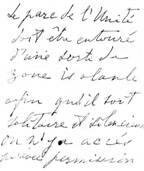 Le parc de l'Unité
doit être entouré
d'une sorte de
zone isolante
afin qu'il soit
solitaire et silencieux
on n'y a accès
qu'avec permission